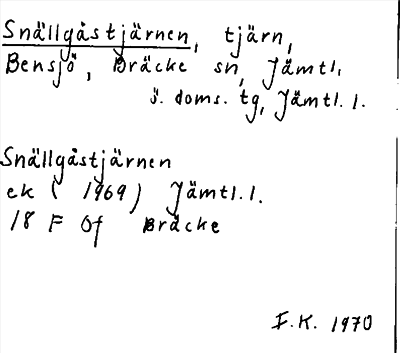 Snällgåstjärnen, tjärn,
Bensjö, Bräcke sn, Jämtl.
s. doms. tg, Jämtl. l.
Snällgåstjärnen
ek (1969) Jämtl. l.
18 F Of Bräcke
F.K. 1970